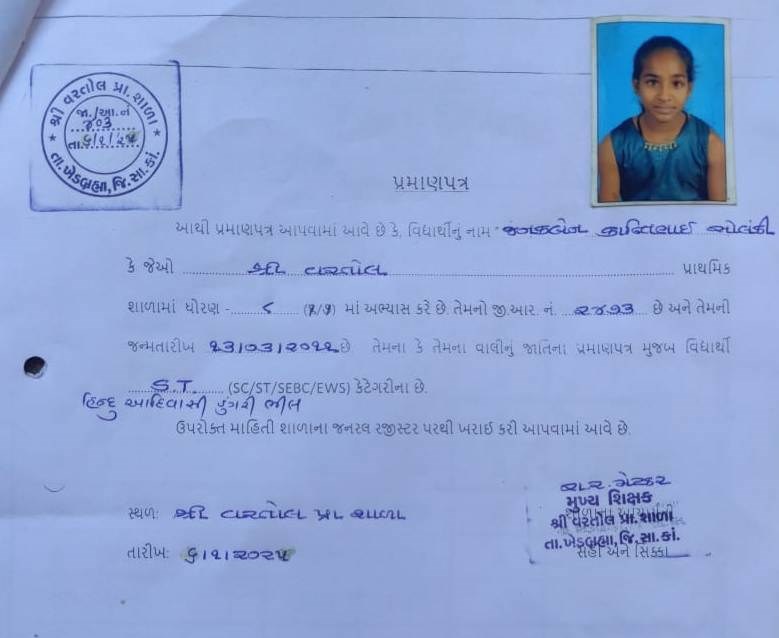 શ્રી વરતોલ પ્રા. શાળા
જા./આ.નં
૪૦૩
તા. ૬/૧/૨૫
તા.ખેડબ્રહ્મા, જિ.સા.કાં.
પ્રમાણપત્ર
આથી પ્રમાણપત્ર આપવામાં આવે છે કે, વિદ્યાર્થીનું નામ સોલંકી
કે જેઓ શ્રી વરતોલ પ્રાથમિક
શાળામાં ધોરણ - ૮ માં અભ્યાસ કરે છે. તેમનો જી.આર. નં. ૨૪૧૩ છે અને તેમની
જન્મતારીખ છે તેમના કે તેમના વાલીનું જાતિના પ્રમાણપત્ર મુજબ વિદ્યાર્થી
S.T. (SC/ST/SEBC/EWS) કેટેગરીના છે.
હિન્દુ આદિવાસી ડુંગરી ભીલ
ઉપરોક્ત માહિતી શાળાના જનરલ રજીસ્ટર પરથી ખરાઈ કરી આપવામાં આવે છે.
સ્થળ: શ્રી વરતોલ પ્રા. શાળા
તારીખ: ૬/૧/૨૦૨૫
મુખ્ય શિક્ષક
શ્રી વરતોલ પ્રા. શાળા
તા.ખેડબ્રહ્મા, જિ.સા.કાં.
સહી અને સિક્કા